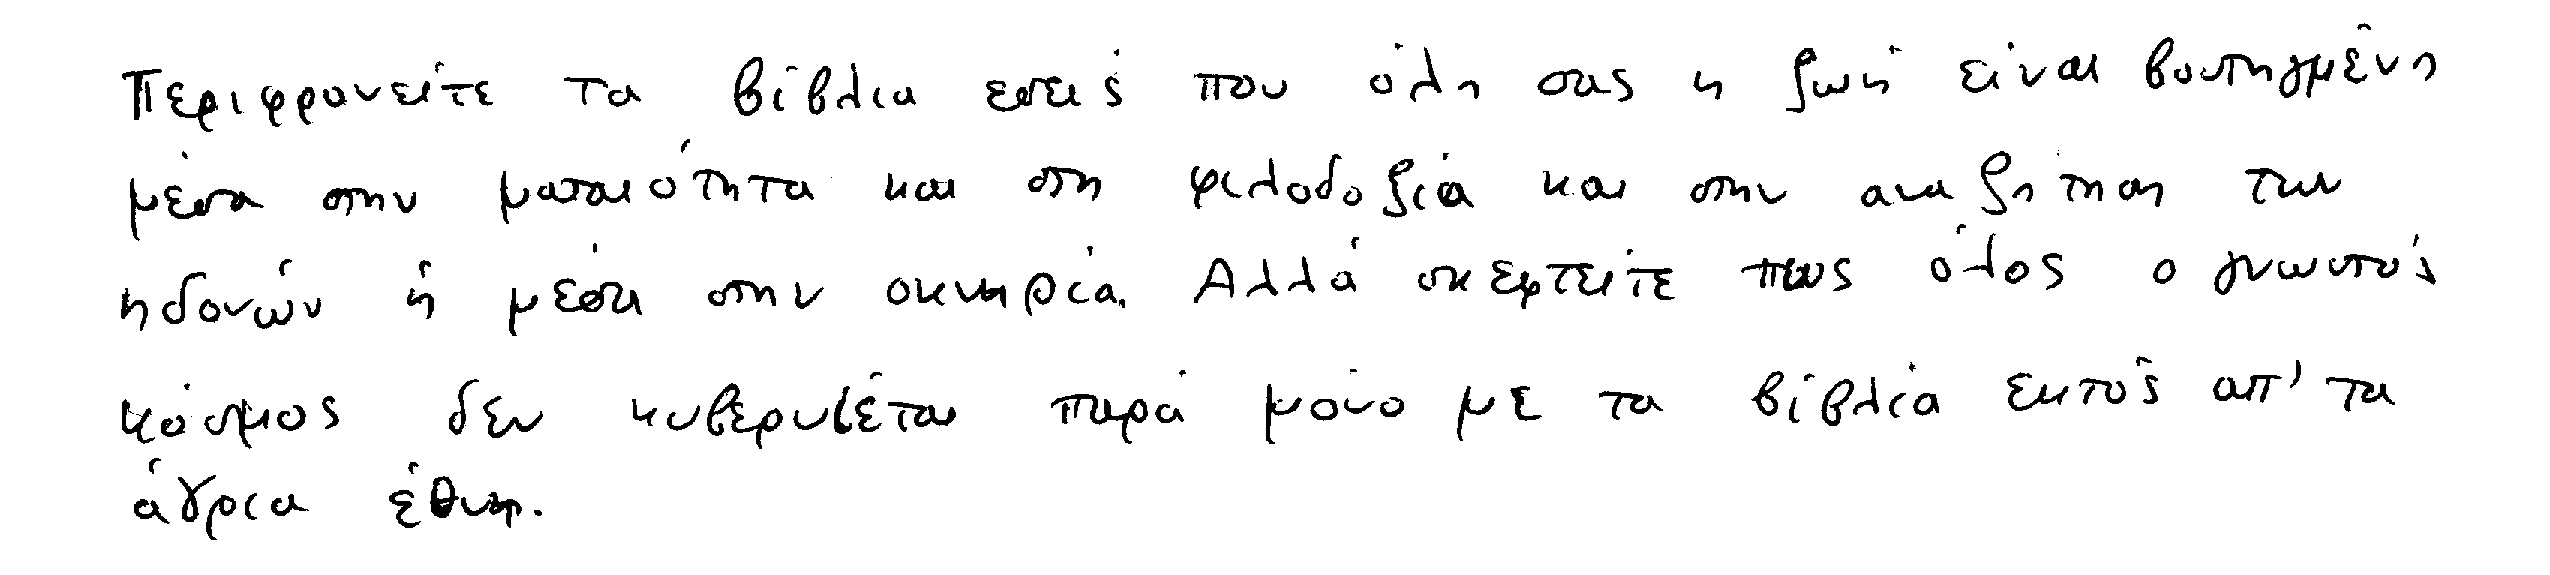 Περιφρονείτε τα βιβλία εσείς που όλη σας η ζωή είναι βουτηγμένη
μέσα στην ματαιότητα και στη φιλοδοξία και στην αναζήτηση των
ηδονών ή μέσα στην οκνηρία. Αλλά σκεφτείτε πως όλος ο γνωστός
κόσμος δεν κυβερνιέται παρά μόνο με τα βιβλία εκτός απ' τα
άγρια έθνη.